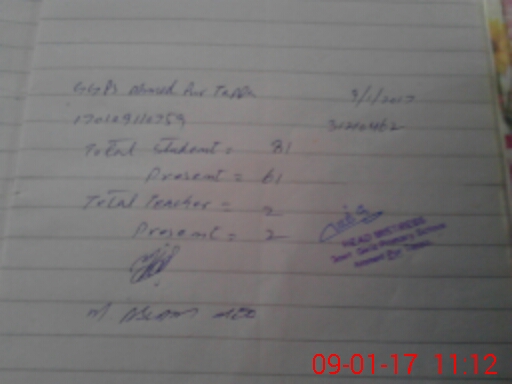 GGPS Ahmed Pur Tappa
3/1/2017
31210462
Total Student = 81
Present = 61
Total Teacher = 2
Present = 2
HEAD MISTRESS
Govt. Girls Primary School
09-01-17 11:12